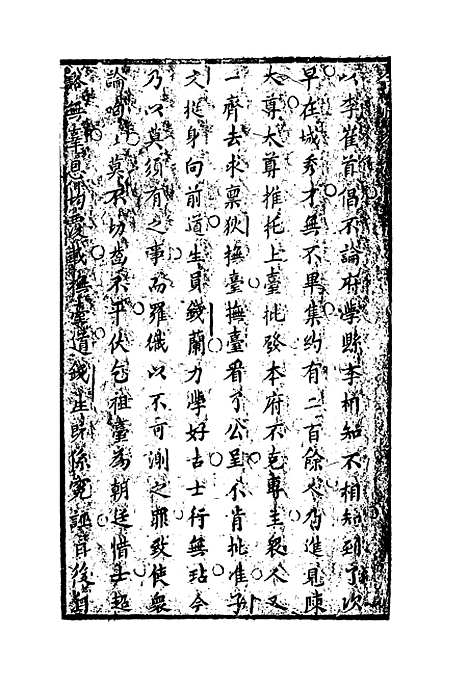 以李崔首倡不論府學縣李相知不相知到了次
早在城秀才無不畢集約有二百餘人皆進見陳
大尊大尊推托上臺批發本府不克專主衆人又
一齊去求稟狄撫臺撫臺看了公呈不肯批准子
文挺身向前道生員錢蘭力學好古士行無玷今
乃以莫須有之事而羅織以不可測之罪致使衆
論喧莫不切齒不平伏乞祖臺為朝廷惜士超
豁無辜恩同覆載撫臺道錢生既係冤誣自後